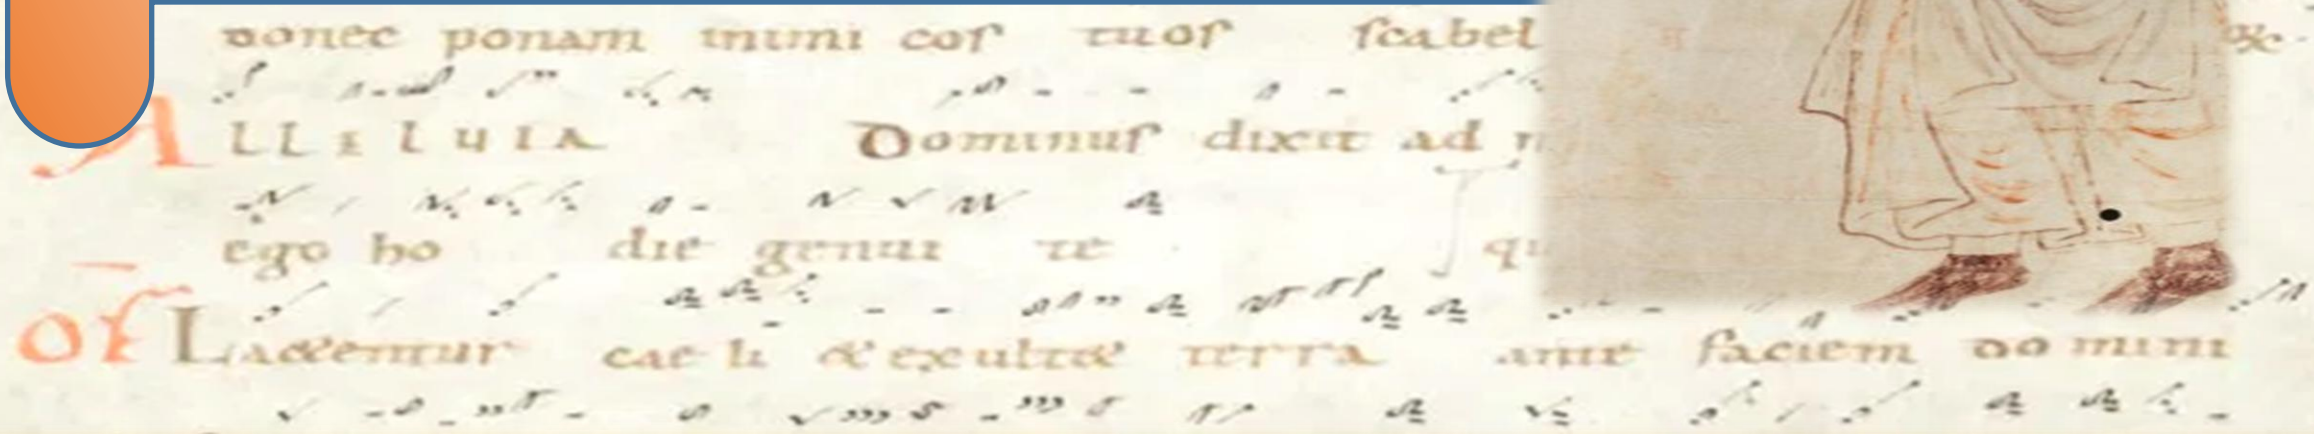 donec ponam inimi cos tuos scabel
ALLELUIA Dominus dixit ad
ego ho die genui te
OF Laetentur cae li & exultet terra ante faciem do mini